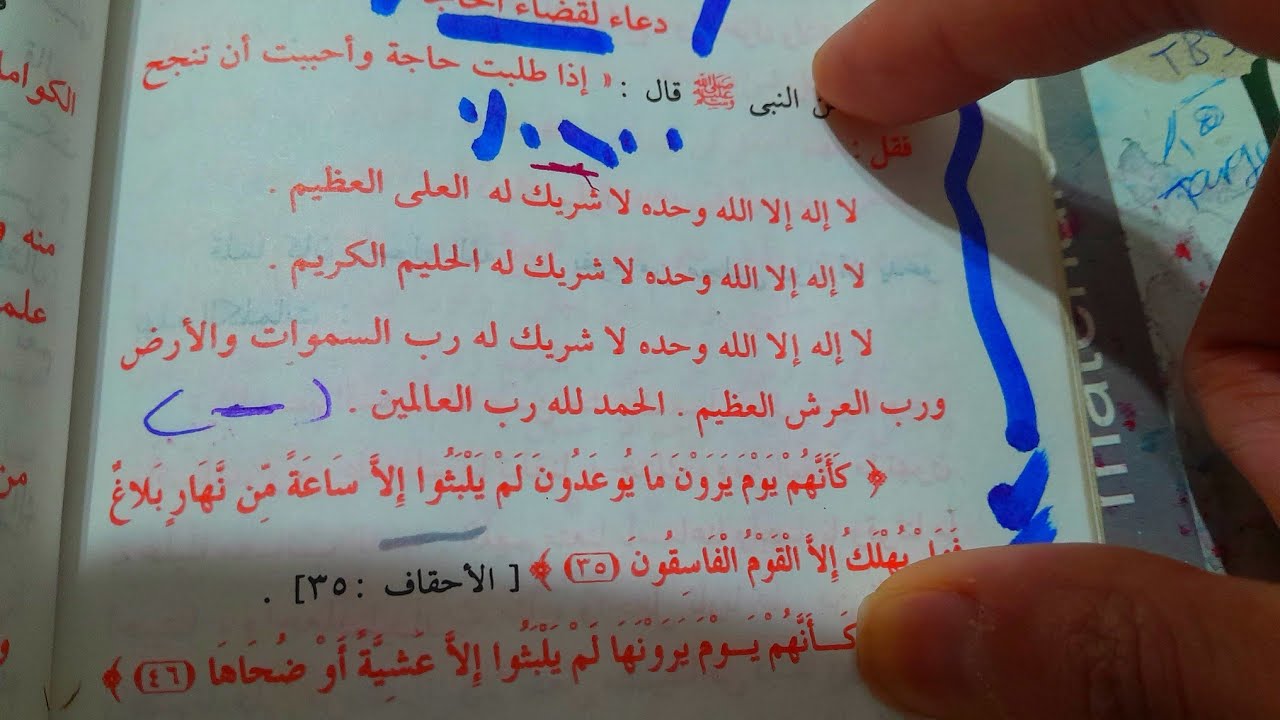 دعاء لقضاء
النبى ﷺ قال : « إذا طلبت حاجة وأحببت أن تنجح
فقل :
لا إله إلا الله وحده لا شريك له العلى العظيم .
لا إله إلا الله وحده لا شريك له الحليم الكريم .
لا إله إلا الله وحده لا شريك له رب السموات والأرض
ورب العرش العظيم . الحمد لله رب العالمين .
﴿ كَأَنَّهُمْ يَوْمَ يَرَوْنَ مَا يُوعَدُونَ لَمْ يَلْبَثُوا إِلاَّ سَاعَةً مِّن نَّهَارٍ بَلاغٌ
يُهْلَكُ إِلاَّ الْقَوْمُ الْفَاسِقُونَ (٣٥) ﴾ [ الأحقاف : ٣٥] .
كَأَنَّهُمْ يَوْمَ يَرَوْنَهَا لَمْ يَلْبَثُوا إِلاَّ عَشِيَّةً أَوْ ضُحَاهَا (٤٦) ﴾
منه
TBS